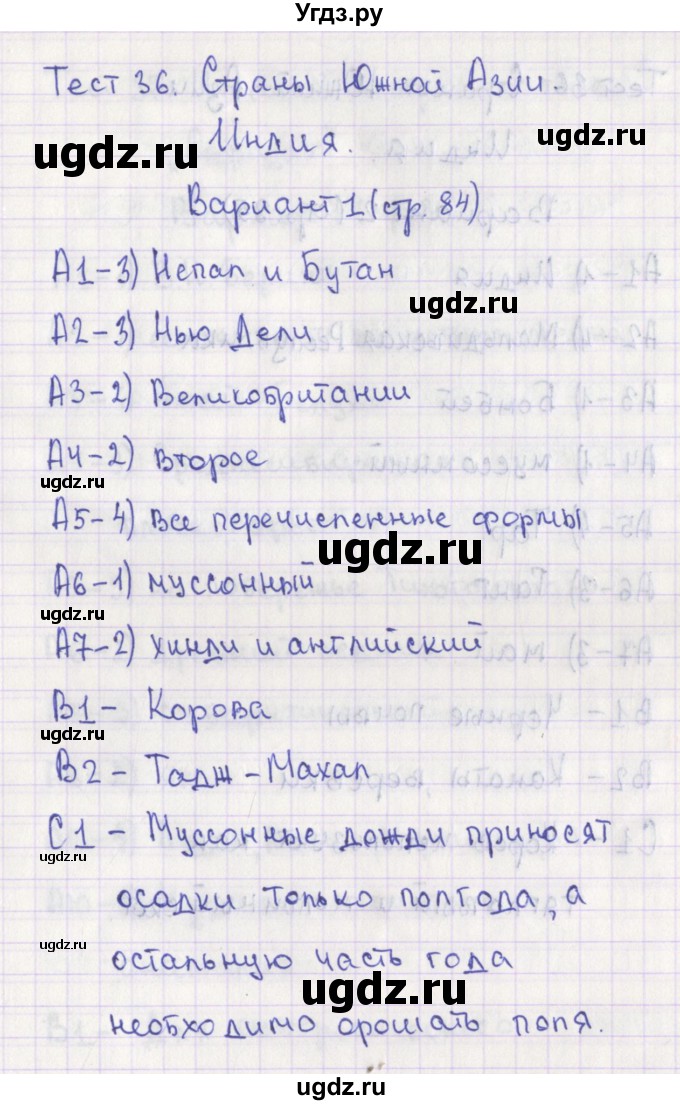 Угдз.ру
Тест 36. Страны Южной Азии.
Индия.
ugdz.ru
Вариант 1 (стр. 84)
А1-3) Непал и Бутан
ugdz.ru
А2-3) Нью Дели
ugdz.ru
А3-2) Великобритании
А4-2) второе
ugdz.ru
А5-4) все перечисленные формы
ugdz.ru
А6-1) муссонный
ugdz.ru
А7-2) хинди и английский
В1- Корова
ugdz.ru
В2 - Тадж-Махал
С1 - Муссонные дожди приносят
ugdz.ru
осадки только полгода, а
ugdz.ru
остальную часть года
ugdz.ru
необходимо орошать поля.
ugdz.ru
ugdz.ru